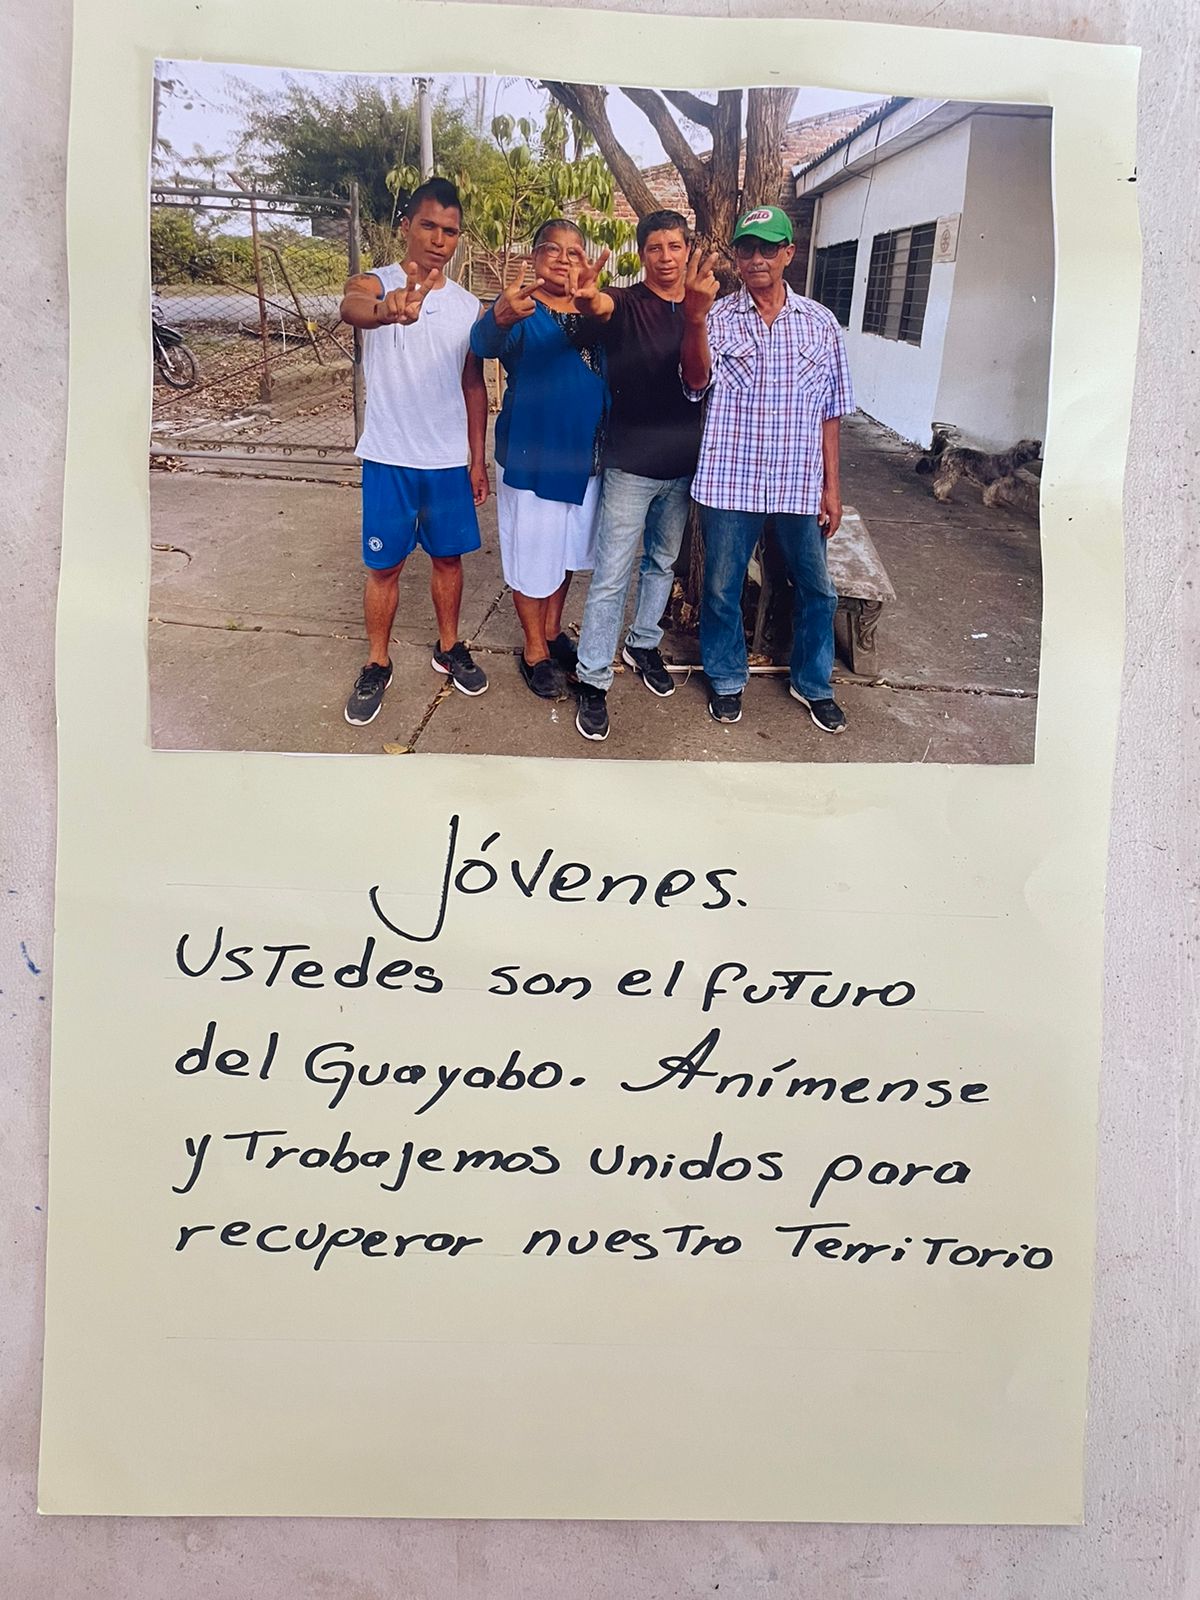 MILO
Jóvenes.
Ustedes son el futuro
del Guayabo. Anímense
y Trabajemos unidos para
recuperar nuestro Territorio